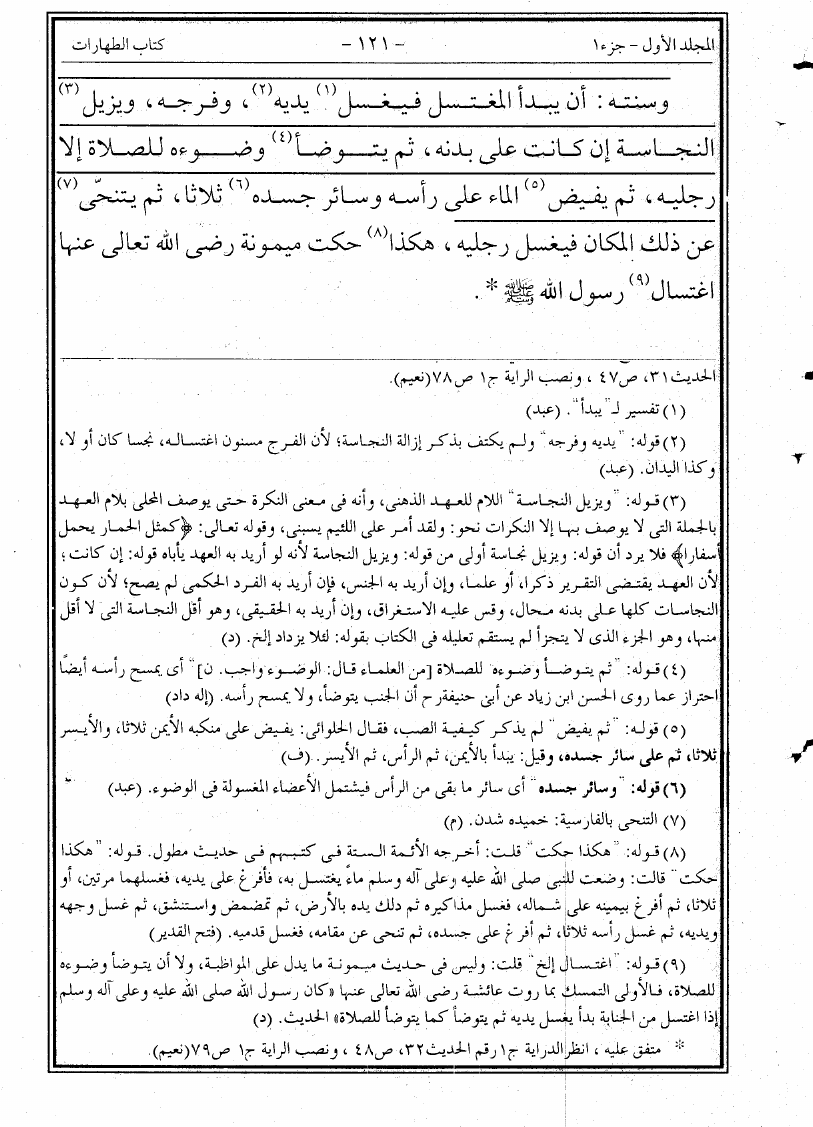 المجلد الأول - جزء١ - ١٢١ - كتاب الطهارات
وسنته: أن يبدأ المغتسل فيغسل(١) يديه(٢)، وفرجه، ويزيل(٣)
النجاسة إن كانت على بدنه، ثم يتوضأ(٤) وضوءه للصلاة إلا
رجليه، ثم يفيض(٥) الماء على رأسه وسائر جسده(٦) ثلاثا، ثم يتنحّى(٧)
عن ذلك المكان فيغسل رجليه، هكذا(٨) حكت ميمونة رضى الله تعالى عنها
اغتسال(٩) رسول الله ﷺ *.
الحديث٣١، ص٤٧ ، ونصب الراية ج١ ص٧٨(نعيم).
(١) تفسير لـ"يبدأ". (عبد)
(٢) قوله: "يديه وفرجه" ولم يكتف بذكر إزالة النجاسة؛ لأن الفرج مسنون اغتساله، نجسا كان أو لا،
وكذا اليدان. (عبد)
(٣) قوله: "ويزيل النجاسة" اللام للعهد الذهنى، وأنه فى معنى النكرة حتى يوصف المحلى بلام العهد
بالجملة التى لا يوصف بها إلا النكرات نحو: ولقد أمر على اللئيم يسبنى، وقوله تعالى: ﴿كمثل الحمار يحمل
أسفارا﴾ فلا يرد أن قوله: ويزيل نجاسة أولى من قوله: ويزيل النجاسة لأنه لو أريد به العهد يأباه قوله: إن كانت؛
لأن العهد يقتضى التقرير ذكرا، أو علما، وإن أريد به الجنس، فإن أريد به الفرد الحكمى لم يصح؛ لأن كون
النجاسات كلها على بدنه محال، وقس عليه الاستغراق، وإن أريد به الحقيقى، وهو أقل النجاسة التى لا أقل
منها، وهو الجزء الذى لا يتجزأ لم يستقم تعليله فى الكتاب بقوله: لئلا يزداد إلخ. (د)
(٤) قوله: "ثم يتوضأ وضوءه للصلاة [من العلماء قال: الوضوء واجب. ن]" أى يمسح رأسه أيضًا
احتراز عما روى الحسن ابن زياد عن أبى حنيفةرح أن الجنب يتوضأ، ولا يمسح رأسه. (إله داد)
(٥) قوله: "ثم يفيض" لم يذكر كيفية الصب، فقال الحلوائى: يفيض على منكبه الأيمن ثلاثا، والأيسر
ثلاثا، ثم على سائر جسده، وقيل: يبدأ بالأيمن، ثم الرأس، ثم الأيسر. (ف)
(٦) قوله: "وسائر جسده" أى سائر ما بقى من الرأس فيشتمل الأعضاء المغسولة فى الوضوء. (عبد)
(٧) التنحى بالفارسية: خميده شدن. (م)
(٨) قوله: "هكذا حكت" قلت: أخرجه الأئمة الستة فى كتبهم فى حديث مطول. قوله: "هكذا
حكت" قالت: وضعت للنبى صلى الله عليه وعلى آله وسلم ماءً يغتسل به، فأفرغ على يديه، فغسلهما مرتين، أو
ثلاثا، ثم أفرغ بيمينه على شماله، فغسل مذاكيره ثم دلك يده بالأرض، ثم تمضمض واستنشق، ثم غسل وجهه
ويديه، ثم غسل رأسه ثلاثا، ثم أفرغ على جسده، ثم تنحى عن مقامه، فغسل قدميه. (فتح القدير)
(٩) قوله: "اغتسال إلخ" قلت: وليس فى حديث ميمونة ما يدل على المواظبة، ولا أن يتوضأ وضوءه
للصلاة، فالأولى التمسك بما روت عائشة رضى الله تعالى عنها «كان رسول الله صلى الله عليه وعلى آله وسلم
إذا اغتسل من الجنابة بدأ يغسل يديه ثم يتوضأ كما يتوضأ للصلاة» الحديث. (د)
* متفق عليه ، انظر الدراية ج١ رقم الحديث٣٢، ص٤٨ ، ونصب الراية ج١ ص٧٩(نعيم).